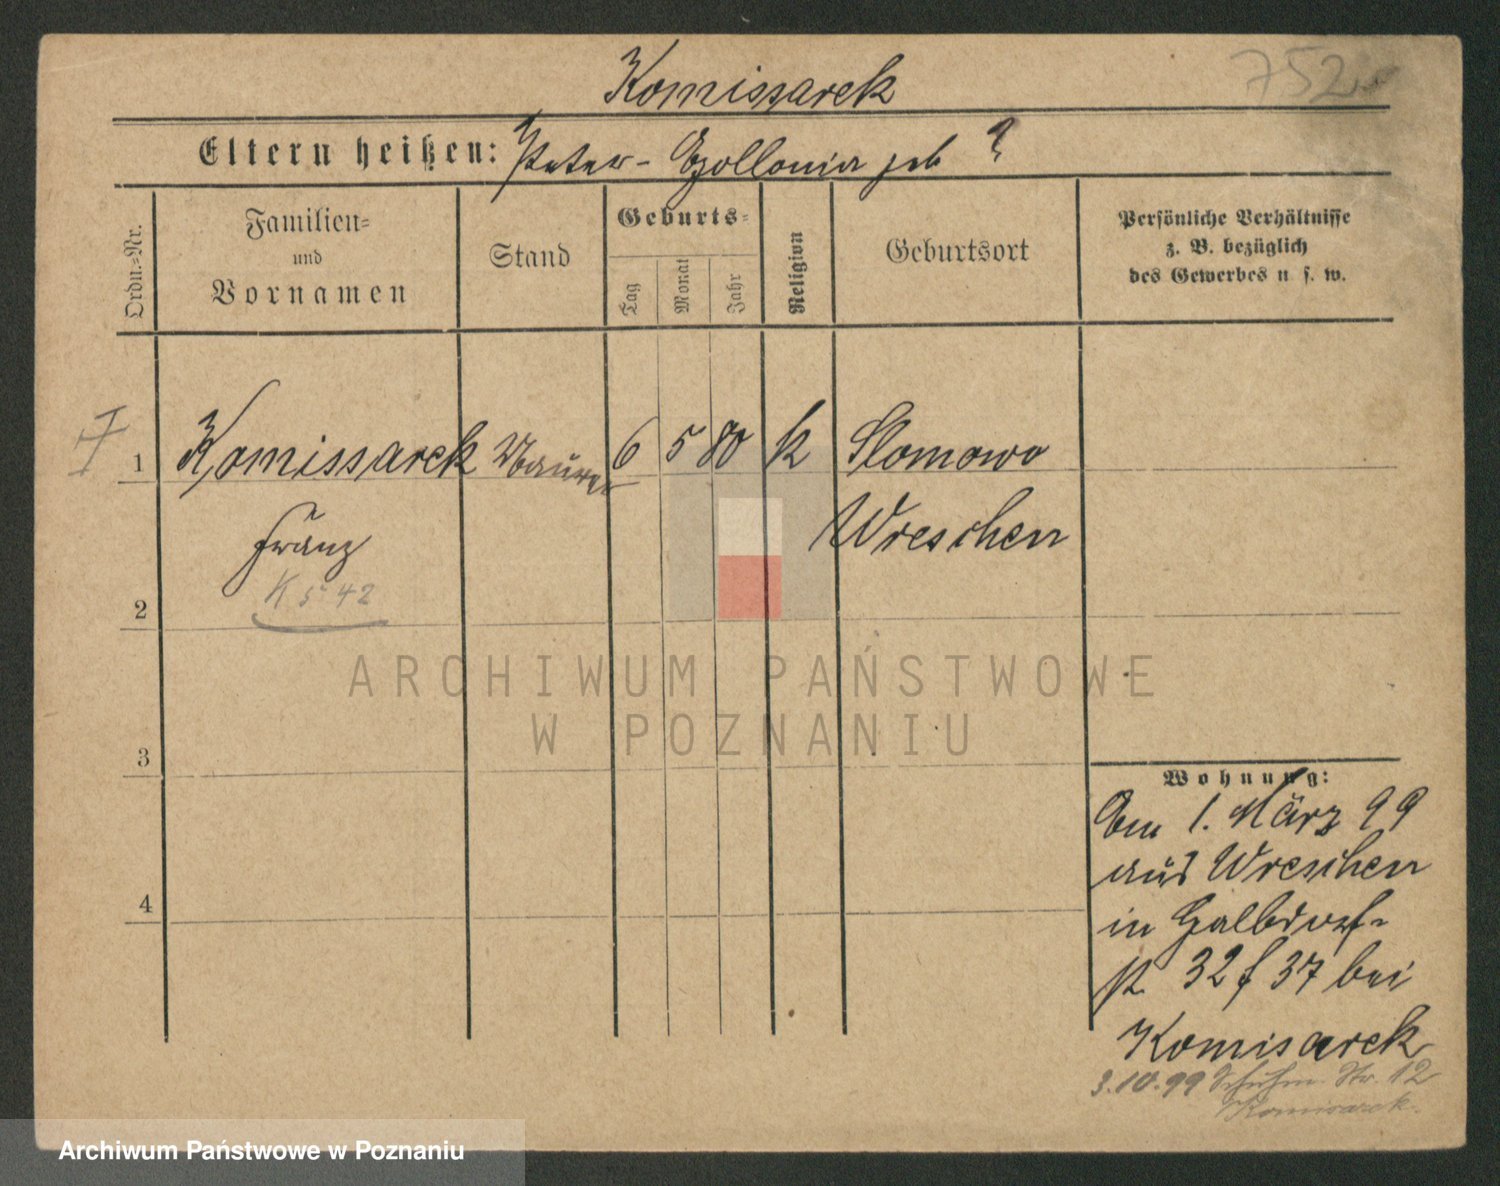 Komissarek
752
Eltern heißen: Peter - Apollonia geb ?
Ordn.-Nr.
Familien-
und
Vornamen
Stand
Geburts-
Tag
Monat
Jahr
Religion
Geburtsort
Persönliche Verhältnisse
z. B. bezüglich
des Gewerbes u. s. w.
1 Komissarek Maurer 6 5 80 k Slomowo
Franz Wreschen
K 5 42
2
3
4
ARCHIWUM PAŃSTWOWE
W POZNANIU
Wohnung:
Am 1. März 99
aus Wreschen
in Halbdorf-
st. 32 f 37 bei
Komisarek
3.10.99 Str. 12
Komisarek.
Archiwum Państwowe w Poznaniu